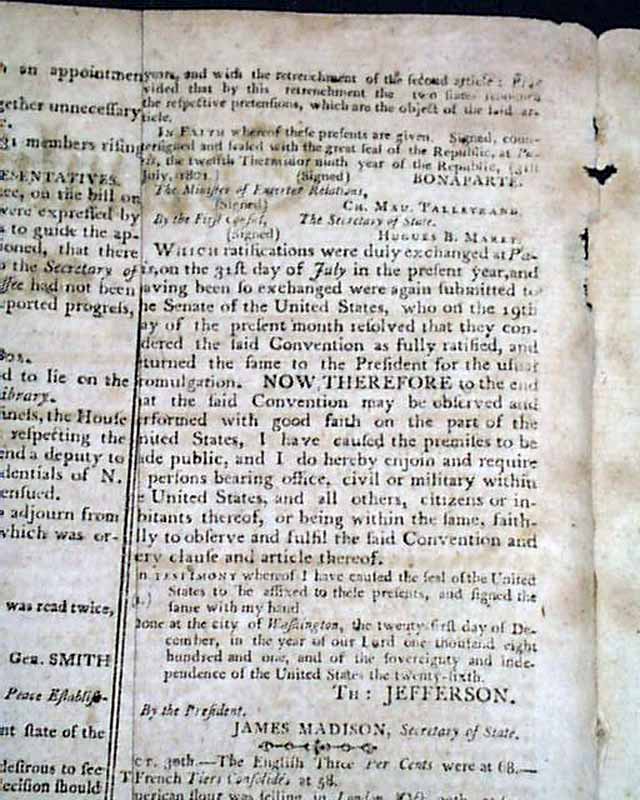 h an appointment
gether unnecessary
r.
31 members rising
ESENTATIVES.
ee, on the bill on
were expreſſed by
s to guide the ap-
ioned, that there
o the Secretary of
ffee had not been
eported progreſs,
802.
ed to lie on the
ibrary.
inels, the Houſe
reſpecting the
end a deputy to
dentials of N.
enſued.
adjourn from
which was or-
was read twice,
Gen. SMITH
Peace Eſtabliſh-
nt ſtate of the
deſirous to ſee
deciſion ſhould
years, and with the retrenchment of the ſecond article: Pro-
vided that by this retrenchment the two ſtates renounce
the reſpective pretenſions, which are the object of the ſaid ar-
ticle.
IN FAITH whereof theſe preſents are given. Signed, coun-
terſigned and ſealed with the great ſeal of the Republic, at Pa-
ris, the twelfth Thermidor ninth year of the Republic, (31ſt
July, 1801.) (Signed) BONAPARTE.
The Miniſter of Exterior Relations,
(Signed) CH. MAU. TALLEYRAND.
By the Firſt Conſul, The Secretary of State.
(Signed) HUGUES B. MARET.
WHICH ratifications were duly exchanged at Pa-
is, on the 31ſt day of July in the preſent year, and
aving been ſo exchanged were again ſubmitted to
he Senate of the United States, who on the 19th
ay of the preſent month reſolved that they con-
dered the ſaid Convention as fully ratified, and
eturned the ſame to the Preſident for the uſual
romulgation. NOW, THEREFORE to the end
at the ſaid Convention may be obſerved and
erformed with good faith on the part of the
nited States, I have cauſed the premiſes to be
ade public, and I do hereby enjoin and require
perſons bearing office, civil or military within
e United States, and all others, citizens or in-
bitants thereof, or being within the ſame, faith-
lly to obſerve and fulfil the ſaid Convention and
ery clauſe and article thereof.
N TESTIMONY whereof I have cauſed the ſeal of the United
States to be affixed to theſe preſents, and ſigned the
.) ſame with my hand
Done at the city of Waſhington, the twenty-firſt day of De-
cember, in the year of our Lord one thouſand eight
hundred and one, and of the ſovereignty and inde-
pendence of the United States the twenty-ſixth.
TH: JEFFERSON.
By the Preſident.
JAMES MADISON, Secretary of State.
CT. 30th.—The Engliſh Three Per Cents were at 68.—
T French Tiers Conſolidés at 58.
perican flour was ſelling, in London